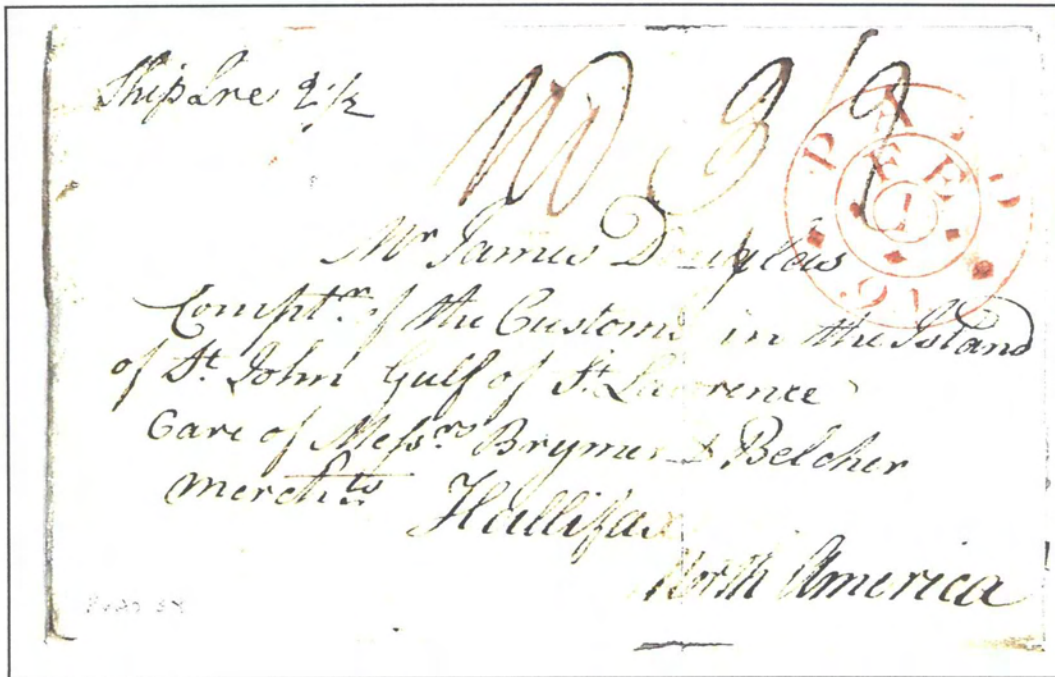 Ship Lre 2½
3/9
PAID
FE
9
96
Mr James Douglas
Comptrr of the Customs in the Island
of St. John Gulf of St Lawrence
Care of Messrs Brymer & Belcher
Merchts Hallifax
North America